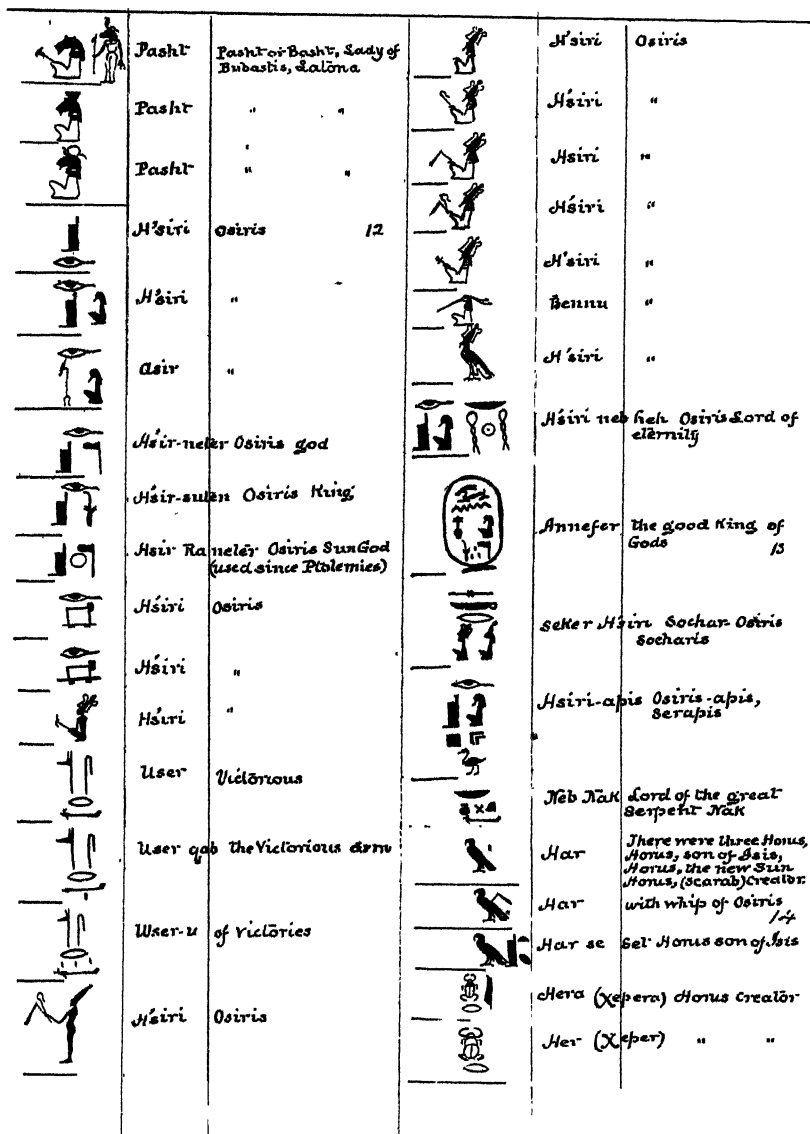 Pasht Pasht or Basht, Lady of
Bubastis, Latona
Pasht " "
Pasht " "
H'siri Osiris 12
H'siri "
Asir "
H'sir-neter Osiris god
H'sir-suten Osiris King
Hsir Ra neter Osiris Sun God
(used since Ptolemies)
H'siri Osiris
H'siri "
H'siri "
User Victorious
User qab the Victorious arm
User-u of Victories
H'siri Osiris
H'siri Osiris
H'siri "
Hsiri "
H'siri "
H'siri "
Bennu "
H'siri "
H'siri neb heh Osiris Lord of
eternity
Annefer the good King of
Gods 13
Seker H'siri Sochar Osiris
Socharis
Hsiri-apis Osiris-apis,
Serapis
Neb Nak Lord of the great
Serpent Nak
Har There were three Horus,
Horus, son of Isis,
Horus, the new Sun
Horus, (scarab) Creator
Har with whip of Osiris
14
Har se Set Horus son of Isis
Hera (Xepera) Horus Creator
Her (Xeper) " "